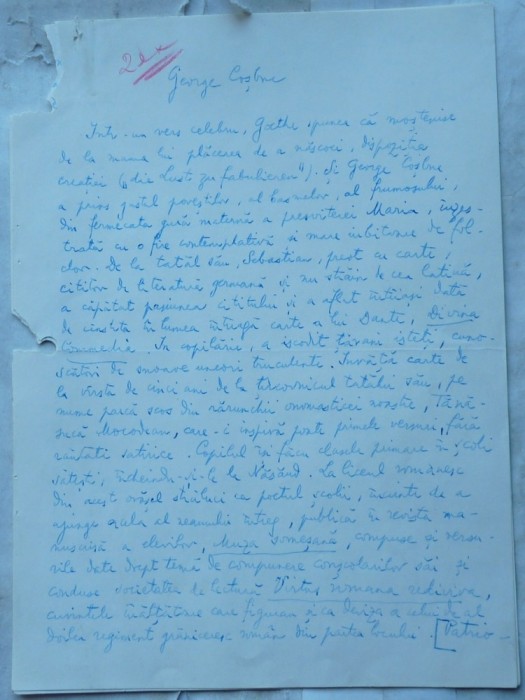 2ex
George Coșbuc
Într-un vers celebru, Goethe spunea că moștenise
de la mama lui plăcerea de a născoci, dispoziția
creației („die Lust zu fabulieren"). Și George Coșbuc
a prins gustul poveștilor, al basmelor, al frumosului,
din fermecata gură maternă a presviterei Maria, înzes-
trată cu o fire contemplativă și mare iubitoare de fol-
clor. De la tatăl său, Sebastian, preot cu carte,
cititor de literatură germană și nu străin de cea latină,
a căpătat pasiunea cititului și a aflat întâiași dată
de cinstita în lumea întreagă carte a lui Dante, Divina
comedia. În copilărie, a iscodit țărani isteți, cuno-
scători de snoave uneori truculente. Învăță carte de
la vârsta de cinci ani de la țîrcovnicul tatălui său, pe
nume parcă scos din rărunchii onomasticei noastre, Tănă-
sucă Mocodean, care-i inspiră poate primele versuri, fără
răutăți satirice. Copilul își făcu clasele primare în școli
sătești, încheindu-și-le la Năsăud. La liceul românesc
din acest orășel străluci ca poetul școlii, înainte de a
ajunge al neamului întreg, publică în revista ma-
nuscrisă a elevilor, Muza someșană, compuse și versu-
rile date drept temă de compunere conșcolarilor săi și
conduse societatea de lectură Virtus romana rediviva,
cuvintele înălțătoare care figurau și ca deviza a celui de al
doilea regiment grăniceresc român din partea locului. [Patrio-